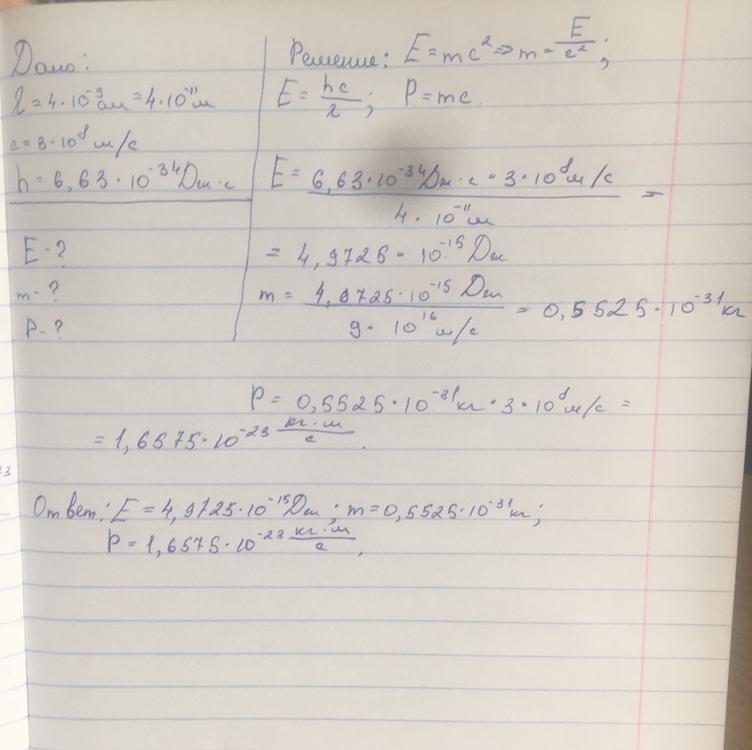 Дано:
λ = 4·10⁻⁹см = 4·10⁻¹¹м
c = 3·10⁸ м/с
h = 6,63·10⁻³⁴ Дж·с
E - ?
m - ?
P - ?
Решение: E = mc² => m = E/c² ;
E = hc/λ ; P = mc.
E = 6,63·10⁻³⁴Дж·с·3·10⁸м/с / 4·10⁻¹¹м =
= 4,9725·10⁻¹⁵ Дж
m = 4,9725·10⁻¹⁵ Дж / 9·10¹⁶ м/с = 0,5525·10⁻³¹кг
P = 0,5525·10⁻³¹кг·3·10⁸м/с =
= 1,6575·10⁻²³ кг·м/с.
Ответ: E = 4,9725·10⁻¹⁵Дж; m = 0,5525·10⁻³¹кг;
P = 1,6575·10⁻²³ кг·м/с.